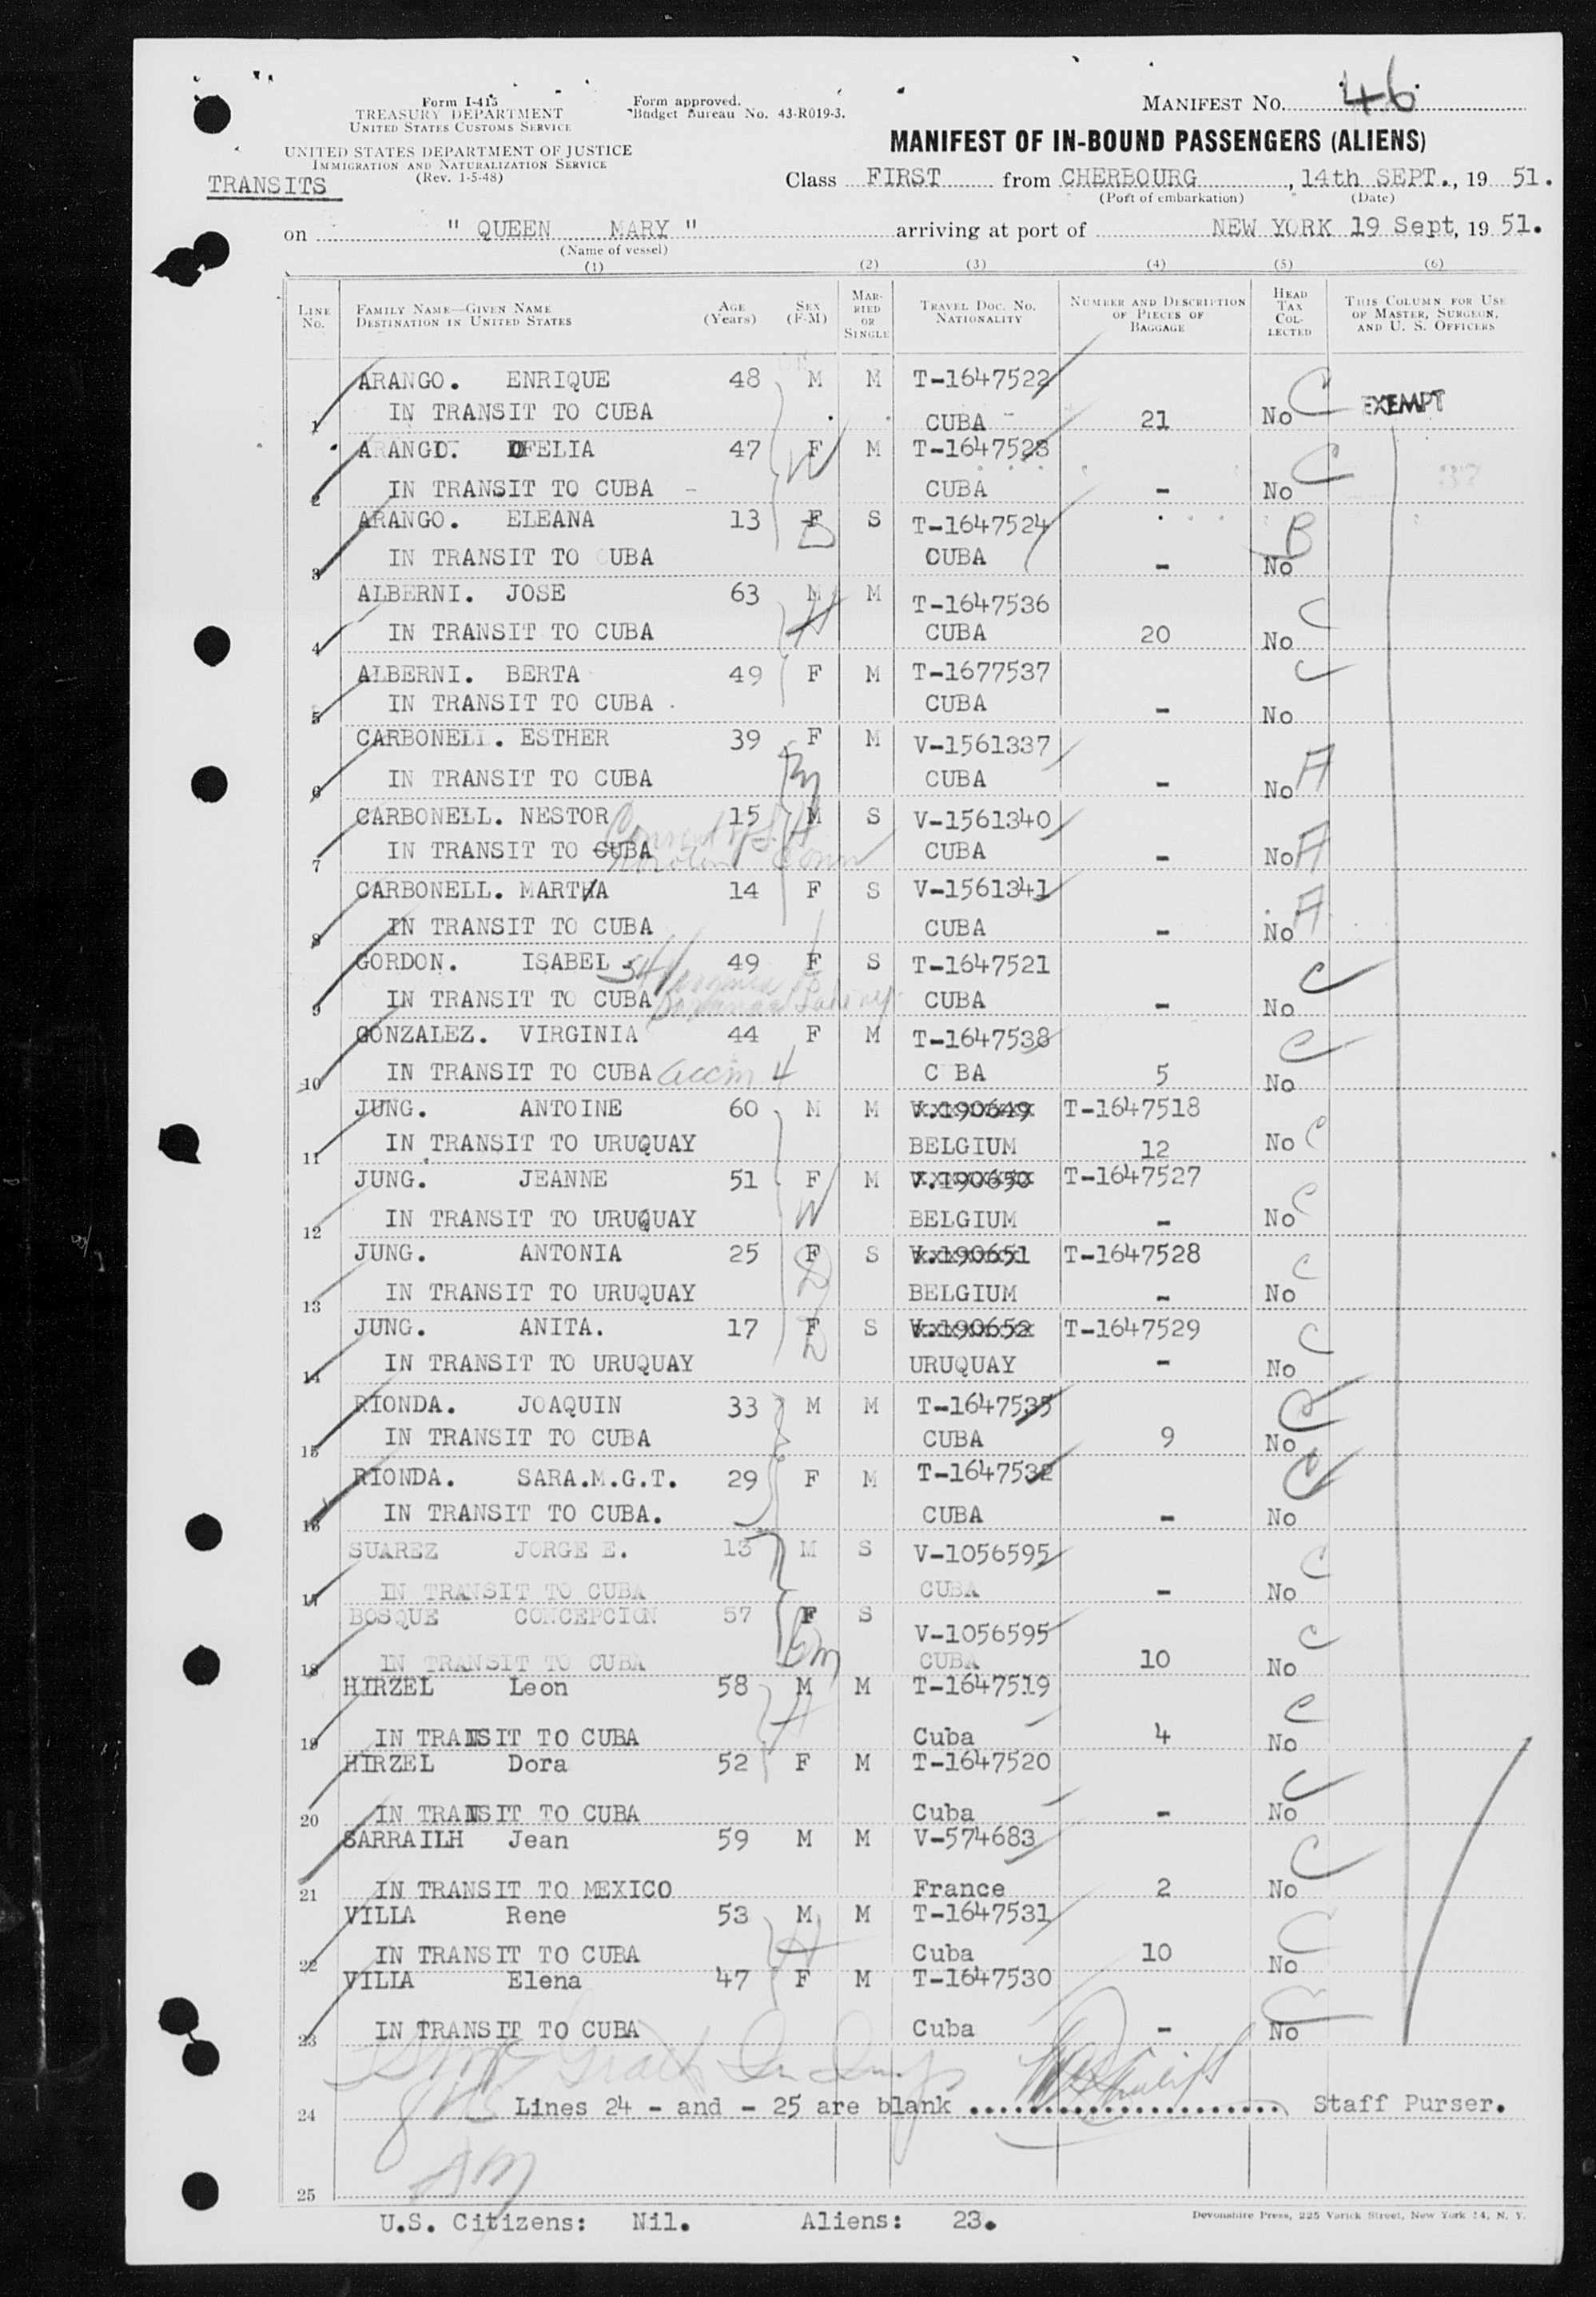 Form I-415
TREASURY DEPARTMENT
UNITED STATES CUSTOMS SERVICE
UNITED STATES DEPARTMENT OF JUSTICE
IMMIGRATION AND NATURALIZATION SERVICE
(Rev. 1-5-48)
TRANSITS
Form approved.
Budget Bureau No. 43-R019-3.
MANIFEST NO. 46
MANIFEST OF IN-BOUND PASSENGERS (ALIENS)
Class FIRST from CHERBOURG, 14th SEPT., 19 51.
(Port of embarkation) (Date)
on " QUEEN MARY " arriving at port of NEW YORK 19 Sept, 19 51.
(Name of vessel)
(1) (2) (3) (4) (5) (6)
LINE No. FAMILY NAME—GIVEN NAME DESTINATION IN UNITED STATES AGE (Years) SEX (F-M) MARRIED OR SINGLE TRAVEL DOC. NO. NATIONALITY NUMBER AND DESCRIPTION OF PIECES OF BAGGAGE HEAD TAX COLLECTED THIS COLUMN FOR USE OF MASTER, SURGEON, AND U. S. OFFICERS
ARANGO. ENRIQUE 48 M M T-1647522
1 IN TRANSIT TO CUBA CUBA 21 No C EXEMPT
ARANGO. OFELIA 47 F M T-1647523
2 IN TRANSIT TO CUBA - CUBA - No C
ARANGO. ELEANA 13 F S T-1647524
3 IN TRANSIT TO CUBA CUBA - No B
ALBERNI. JOSE 63 M M T-1647536
4 IN TRANSIT TO CUBA CUBA 20 No C
ALBERNI. BERTA 49 F M T-1677537
5 IN TRANSIT TO CUBA CUBA - No C
CARBONELL. ESTHER 39 F M V-1561337
6 IN TRANSIT TO CUBA CUBA - No A
CARBONELL. NESTOR 15 M S V-1561340
7 IN TRANSIT TO CUBA Conn CUBA - No A
CARBONELL. MARTHA 14 F S V-1561341
8 IN TRANSIT TO CUBA CUBA - No A
GORDON. ISABEL 54 49 F S T-1647521
9 IN TRANSIT TO CUBA CUBA - No C
GONZALEZ. VIRGINIA 44 F M T-1647538
10 IN TRANSIT TO CUBA accm 4 C BA 5 No C
JUNG. ANTOINE 60 M M V.190649 T-1647518
11 IN TRANSIT TO URUQUAY BELGIUM 12 No C
JUNG. JEANNE 51 F M V.190650 T-1647527
12 IN TRANSIT TO URUQUAY BELGIUM - No C
JUNG. ANTONIA 25 F S V.190651 T-1647528
13 IN TRANSIT TO URUQUAY BELGIUM - No C
JUNG. ANITA. 17 F S V.190652 T-1647529
14 IN TRANSIT TO URUQUAY URUQUAY - No C
RIONDA. JOAQUIN 33 M M T-1647535
15 IN TRANSIT TO CUBA CUBA 9 No C
RIONDA. SARA.M.G.T. 29 F M T-1647532
16 IN TRANSIT TO CUBA. CUBA - No C
SUAREZ JORGE E. 13 M S V-1056595
17 IN TRANSIT TO CUBA CUBA - No C
BOSQUE CONCEPCION 57 F S V-1056595
18 IN TRANSIT TO CUBA CUBA 10 No C
HIRZEL Leon 58 M M T-1647519
19 IN TRANSIT TO CUBA Cuba 4 No C
HIRZEL Dora 52 F M T-1647520
20 IN TRANSIT TO CUBA Cuba - No C
SARRAILH Jean 59 M M V-574683
21 IN TRANSIT TO MEXICO France 2 No C
VILLA Rene 53 M M T-1647531
22 IN TRANSIT TO CUBA Cuba 10 No C
VILLA Elena 47 F M T-1647530
23 IN TRANSIT TO CUBA Cuba - No C
24 Lines 24 - and - 25 are blank ........................ Staff Purser.
25
U.S. Citizens: Nil. Aliens: 23.
Devonshire Press, 225 Varick Street, New York 14, N. Y.